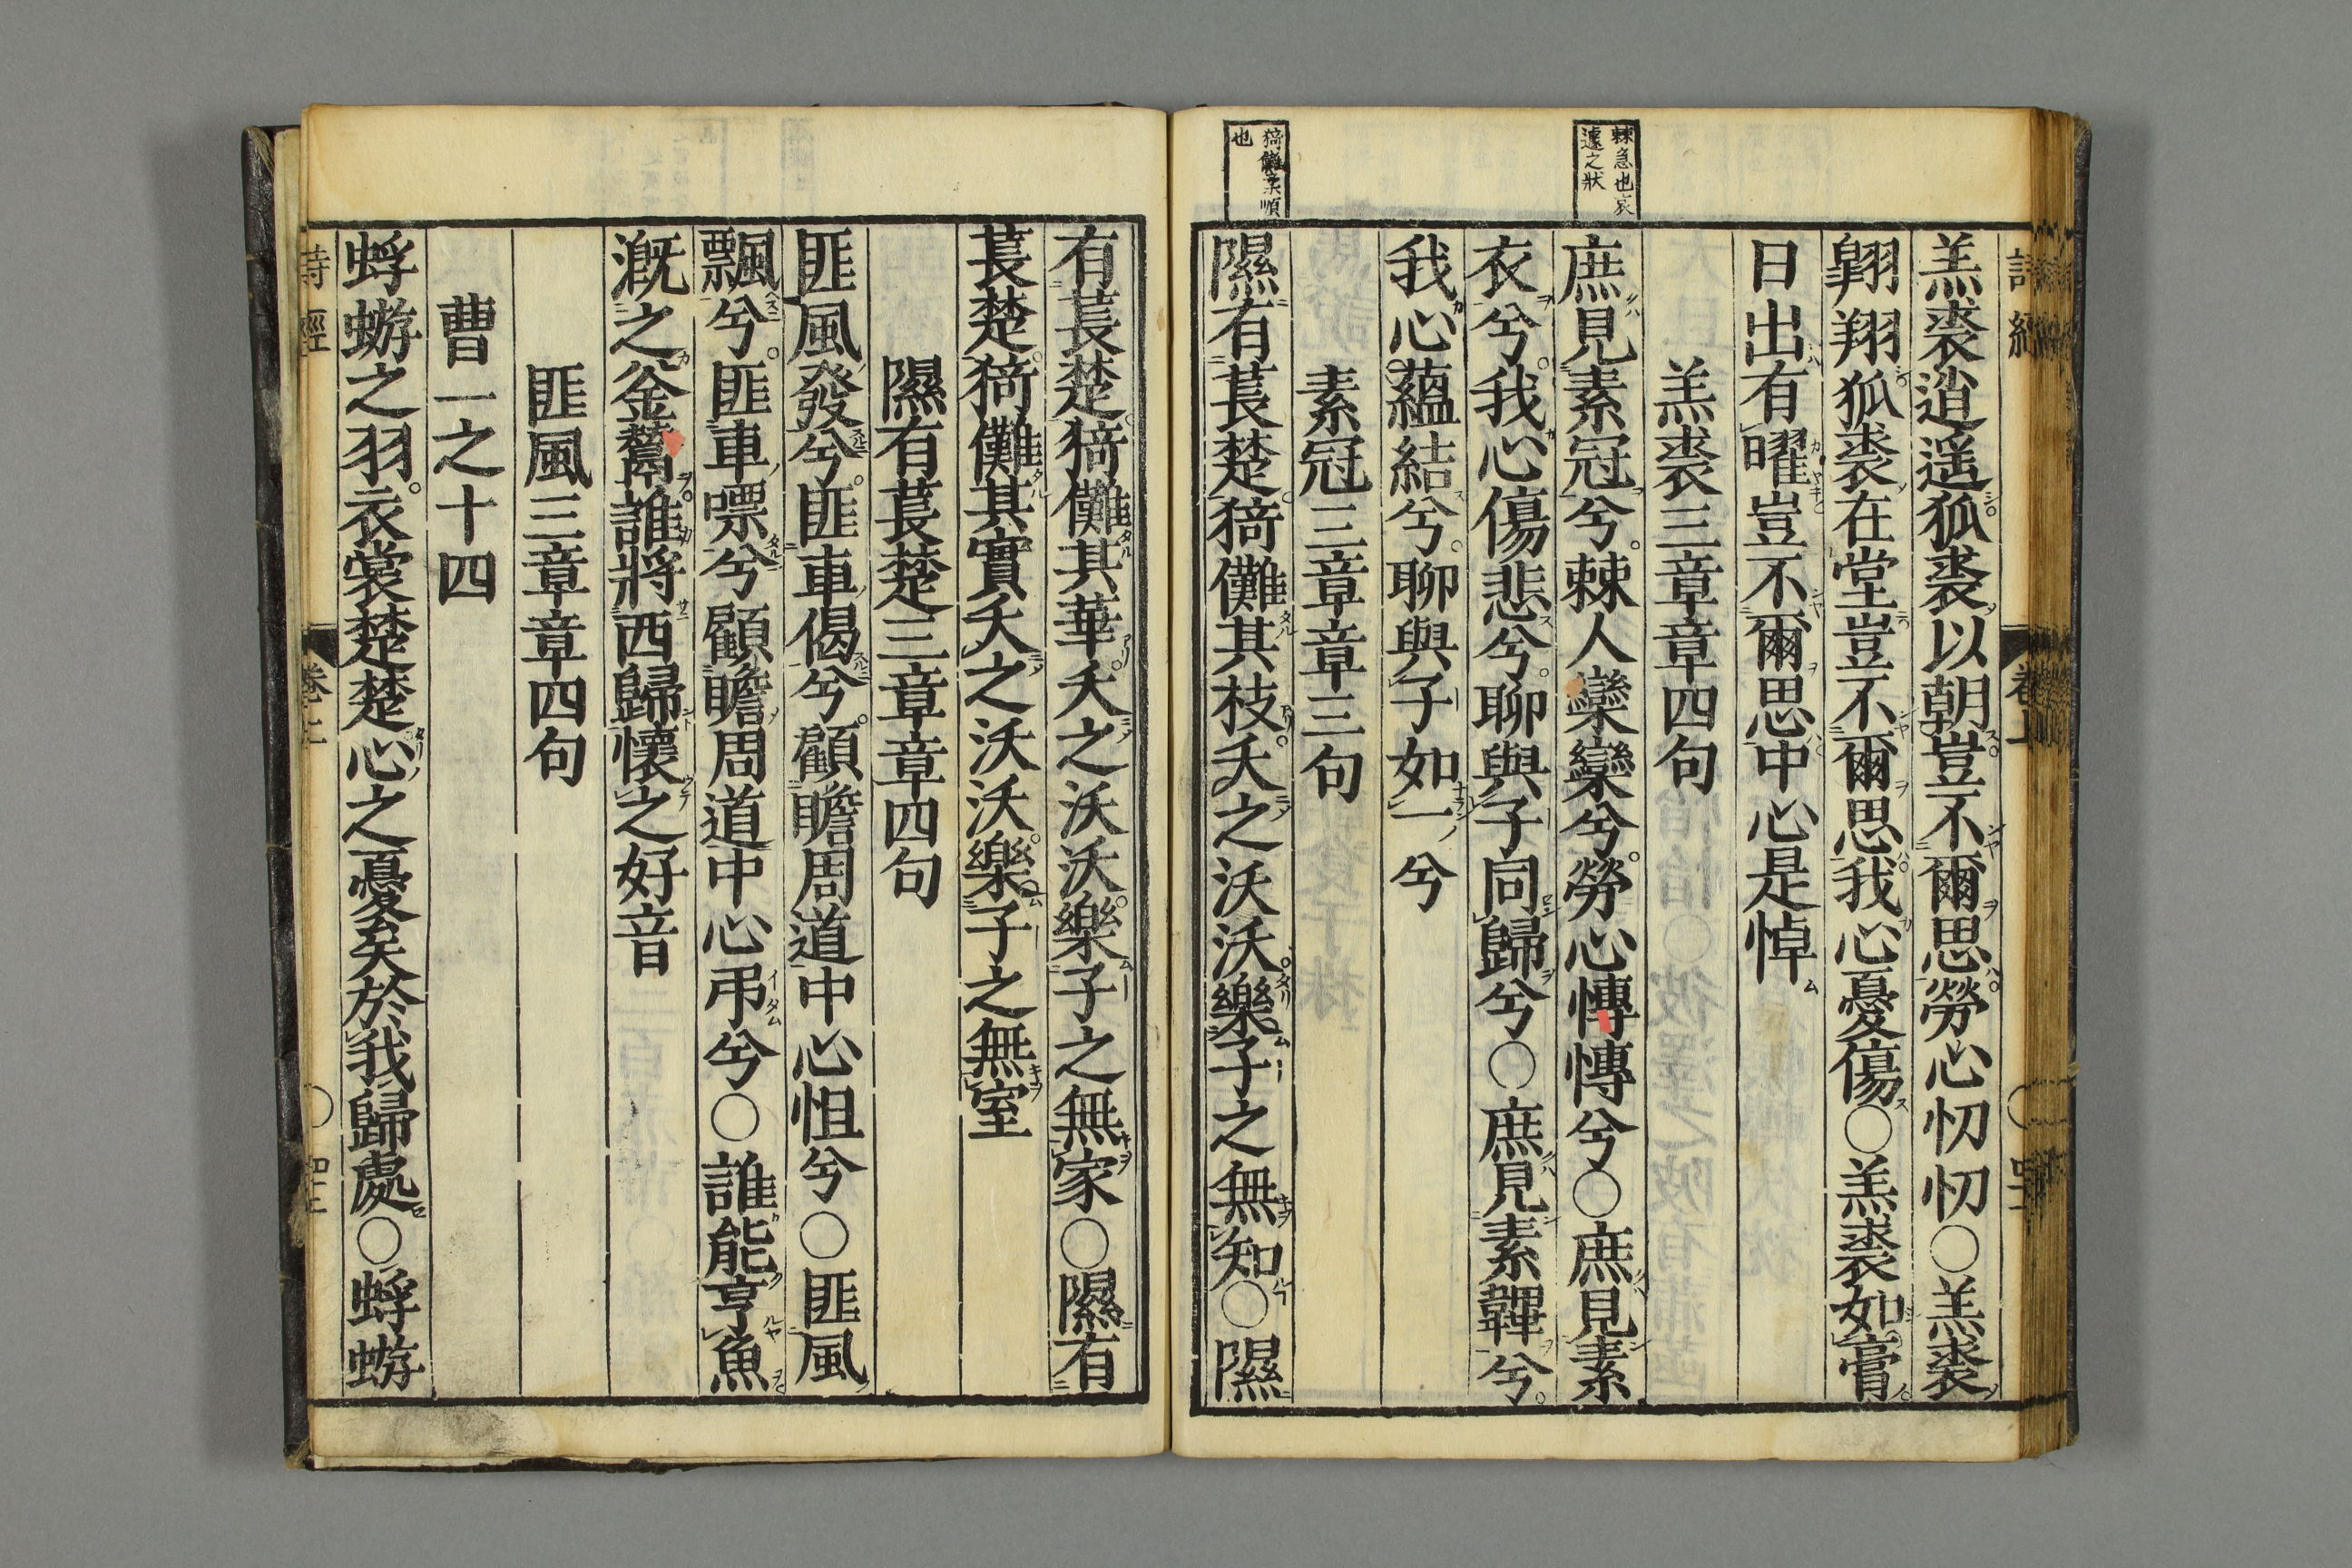 羔裘逍遥狐裘以朝豈不爾思勞心忉忉○羔裘
翺翔狐裘在堂豈不爾思我心憂傷○羔裘如膏
日出有曜豈不爾思中心是悼
羔裘三章章四句
棘急也哀
遽之狀
庶見素冠兮棘人欒欒兮勞心慱慱兮○庶見素
衣兮我心傷悲兮聊與子同歸兮○庶見素韠兮
我心蘊結兮聊與子如一兮
素冠三章章三句
猗儺柔順
也
隰有萇楚猗儺其枝夭之沃沃樂子之無知○隰
有萇楚猗儺其華夭之沃沃樂子之無家○隰有
萇楚猗儺其實夭之沃沃樂子之無室
隰有萇楚三章章四句
匪風發兮匪車偈兮顧瞻周道中心怛兮○匪風
飄兮匪車嘌兮顧瞻周道中心弔兮○誰能亨魚
溉之釜鬵誰將西歸懷之好音
匪風三章章四句
曹一之十四
蜉蝣之羽衣裳楚楚心之憂矣於我歸處○蜉蝣
詩經 卷上